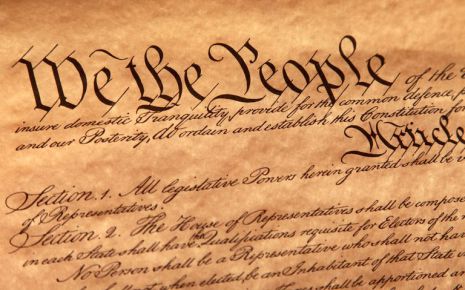 We the People of the
insure domestic Tranquility, provide for the common defence,
and our Posterity, do ordain and establish this Constitution for
Article
Section. 1. All legislative Powers herein granted shall be
of Representatives.
Section. 2. The House of Representatives shall be compose
in each State shall have the Qualifications requisite for Electors of the
No Person shall be a Representative who shall not ha
when elected, be an Inhabitant of that State
shall be apportioned a